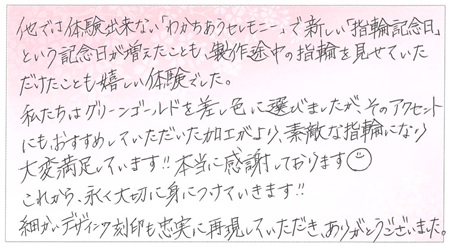 他では体験出来ない「わかちあうセレモニー」で新しい「指輪記念日」
という記念日が増えたことも、製作途中の指輪を見せていた
だけたことも嬉しい体験でした。
私たちはグリーンゴールドを差し色に選びましたが、そのアクセント
にも、おすすめしていただいた加工がより、素敵な指輪になり
大変満足しています!! 本当に感謝しております☺
これから、永く大切に身につけていきます!!
細かいデザイン刻印も忠実に再現していただき、ありがとうございました。